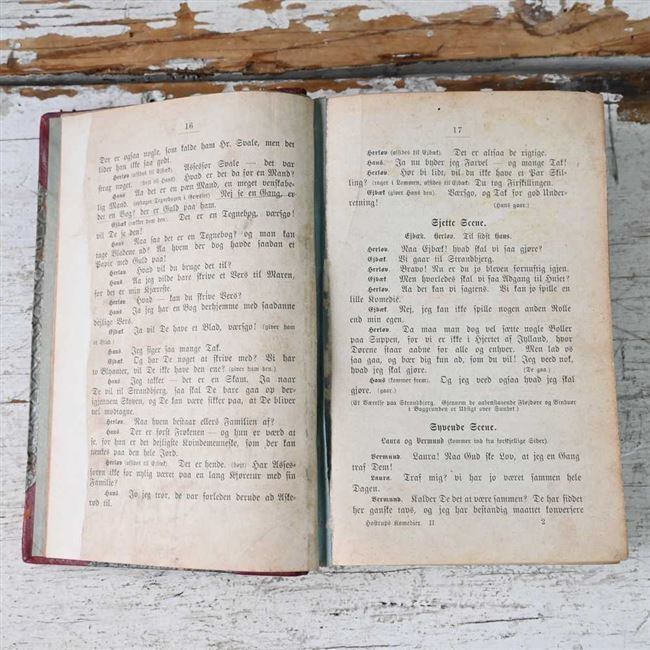 16
Der er ogsaa nogle, som kalde ham Hr. Svale, men det
lider han ikke saa godt.
Herløv (afsides til Ejbæk). Assessor Svale — det var
strax noget. (højt til Hans) Hvad er det da for en Mand?
Hans. Aa det er en pæn Mand, en meget venskabe-
lig Mand. (optager Tegnebogen i Græsset) Nej se en Gang, er
der en Bog! der er Guld paa ham.
Ejbæk (rækker den). Det er en Tegnebog, værsgo!
vil De se den?
Hans. Naa saa det er en Tegnebog? og man kan
tage Bladene ud? Aa hvem der dog havde saadan et
Papir med Guld paa!
Herløv. Hvad vil du bruge det til?
Hans. Aa jeg vilde bare skrive et Vers til Maren,
for det er min Kjæreste.
Herløv. Hvad — kan du skrive Vers?
Hans. Ja jeg har en Bog derhjemme med saadanne
dejlige Vers.
Ejbæk. Ja vil De have et Blad, værsgo! (giver ham
et Blad.)
Hans. Jeg siger saa mange Tak.
Ejbæk. Og har De noget at skrive med? Vi har
to Blyanter, vil De ikke have den ene? (giver ham den.)
Hans. Jeg takker — det er en Skam. Ja naar
De vil til Strandbjerg, saa skal De bare gaa op der-
igjennem Skoven, og De kan være sikker paa, at De bliver
vel modtagne.
Herløv. Naa hvem bestaar ellers Familien af?
Hans. Det er først Frøkenen — og hun er værd at
se, for hun er det dejligste Kvindemenneske, som der kan
nænkes paa den hele Jord.
Herløv (afsides til Ejbæk). Det er hende. (højt) Har Asses-
soren ikke for nylig været paa en lang Kjøretur med sin
Familie?
Hans. Jo jeg tror, de var forleden derude ad Aske-
rød til.
17
Herløv (afsides til Ejbæk). Det er altsaa de rigtige.
Hans. Ja nu byder jeg Farvel — og mange Tak!
Herløv. Hør bi lidt, vil du ikke have et Par Skil-
ling? (tager i Lommen, afsides til Ejbæk) Du tog Firskillingen.
Ejbæk (giver Hans den). Værsgo, og Tak for god Under-
retning! (Hans gaar.)
Sjette Scene.
Ejbæk. Herløv. Til sidst Hans.
Herløv. Naa Ejbæk! hvad skal vi saa gjøre?
Ejbæk. Vi gaar til Strandbjerg.
Herløv. Bravo! Nu er du jo bleven fornuftig igjen.
Ejbæk. Men hvorledes skal vi faa Adgang til Huset?
Herløv. Aa det kan vi sagtens. Vi kan jo spille en
lille Komedie.
Ejbæk. Nej, jeg kan ikke spille nogen anden Rolle
end min egen.
Herløv. Da maa man dog vel sætte nogle Boller
paa Suppen, for vi er ikke i Hjertet af Jylland, hvor
Dørene staar aabne for alle og enhver. Men lad os
saa gaa, og bær dig kun ad, som du vil! Jeg ved nok,
hvad jeg skal gjøre. (De gaa.)
Hans (kommer frem). Og jeg ved ogsaa hvad jeg skal
gjøre. (gaar.)
(Et Værelse paa Strandbjerg. Gjennem de aabenstaaende Fløjdøre og Vinduer
i Baggrunden er Udsigt over Sundet.)
Syvende Scene.
Laura og Vermund (kommer ind fra forskjellige Sider).
Vermund. Laura! Naa Gud ske Lov, at jeg en Gang
traf Dem!
Laura. Traf mig? vi har jo været sammen hele
Dagen.
Vermund. Kalder De det at være sammen? De har siddet
her ganske tavs, og jeg har bestandig maattet konversere
Hostrups Komedier. II 2